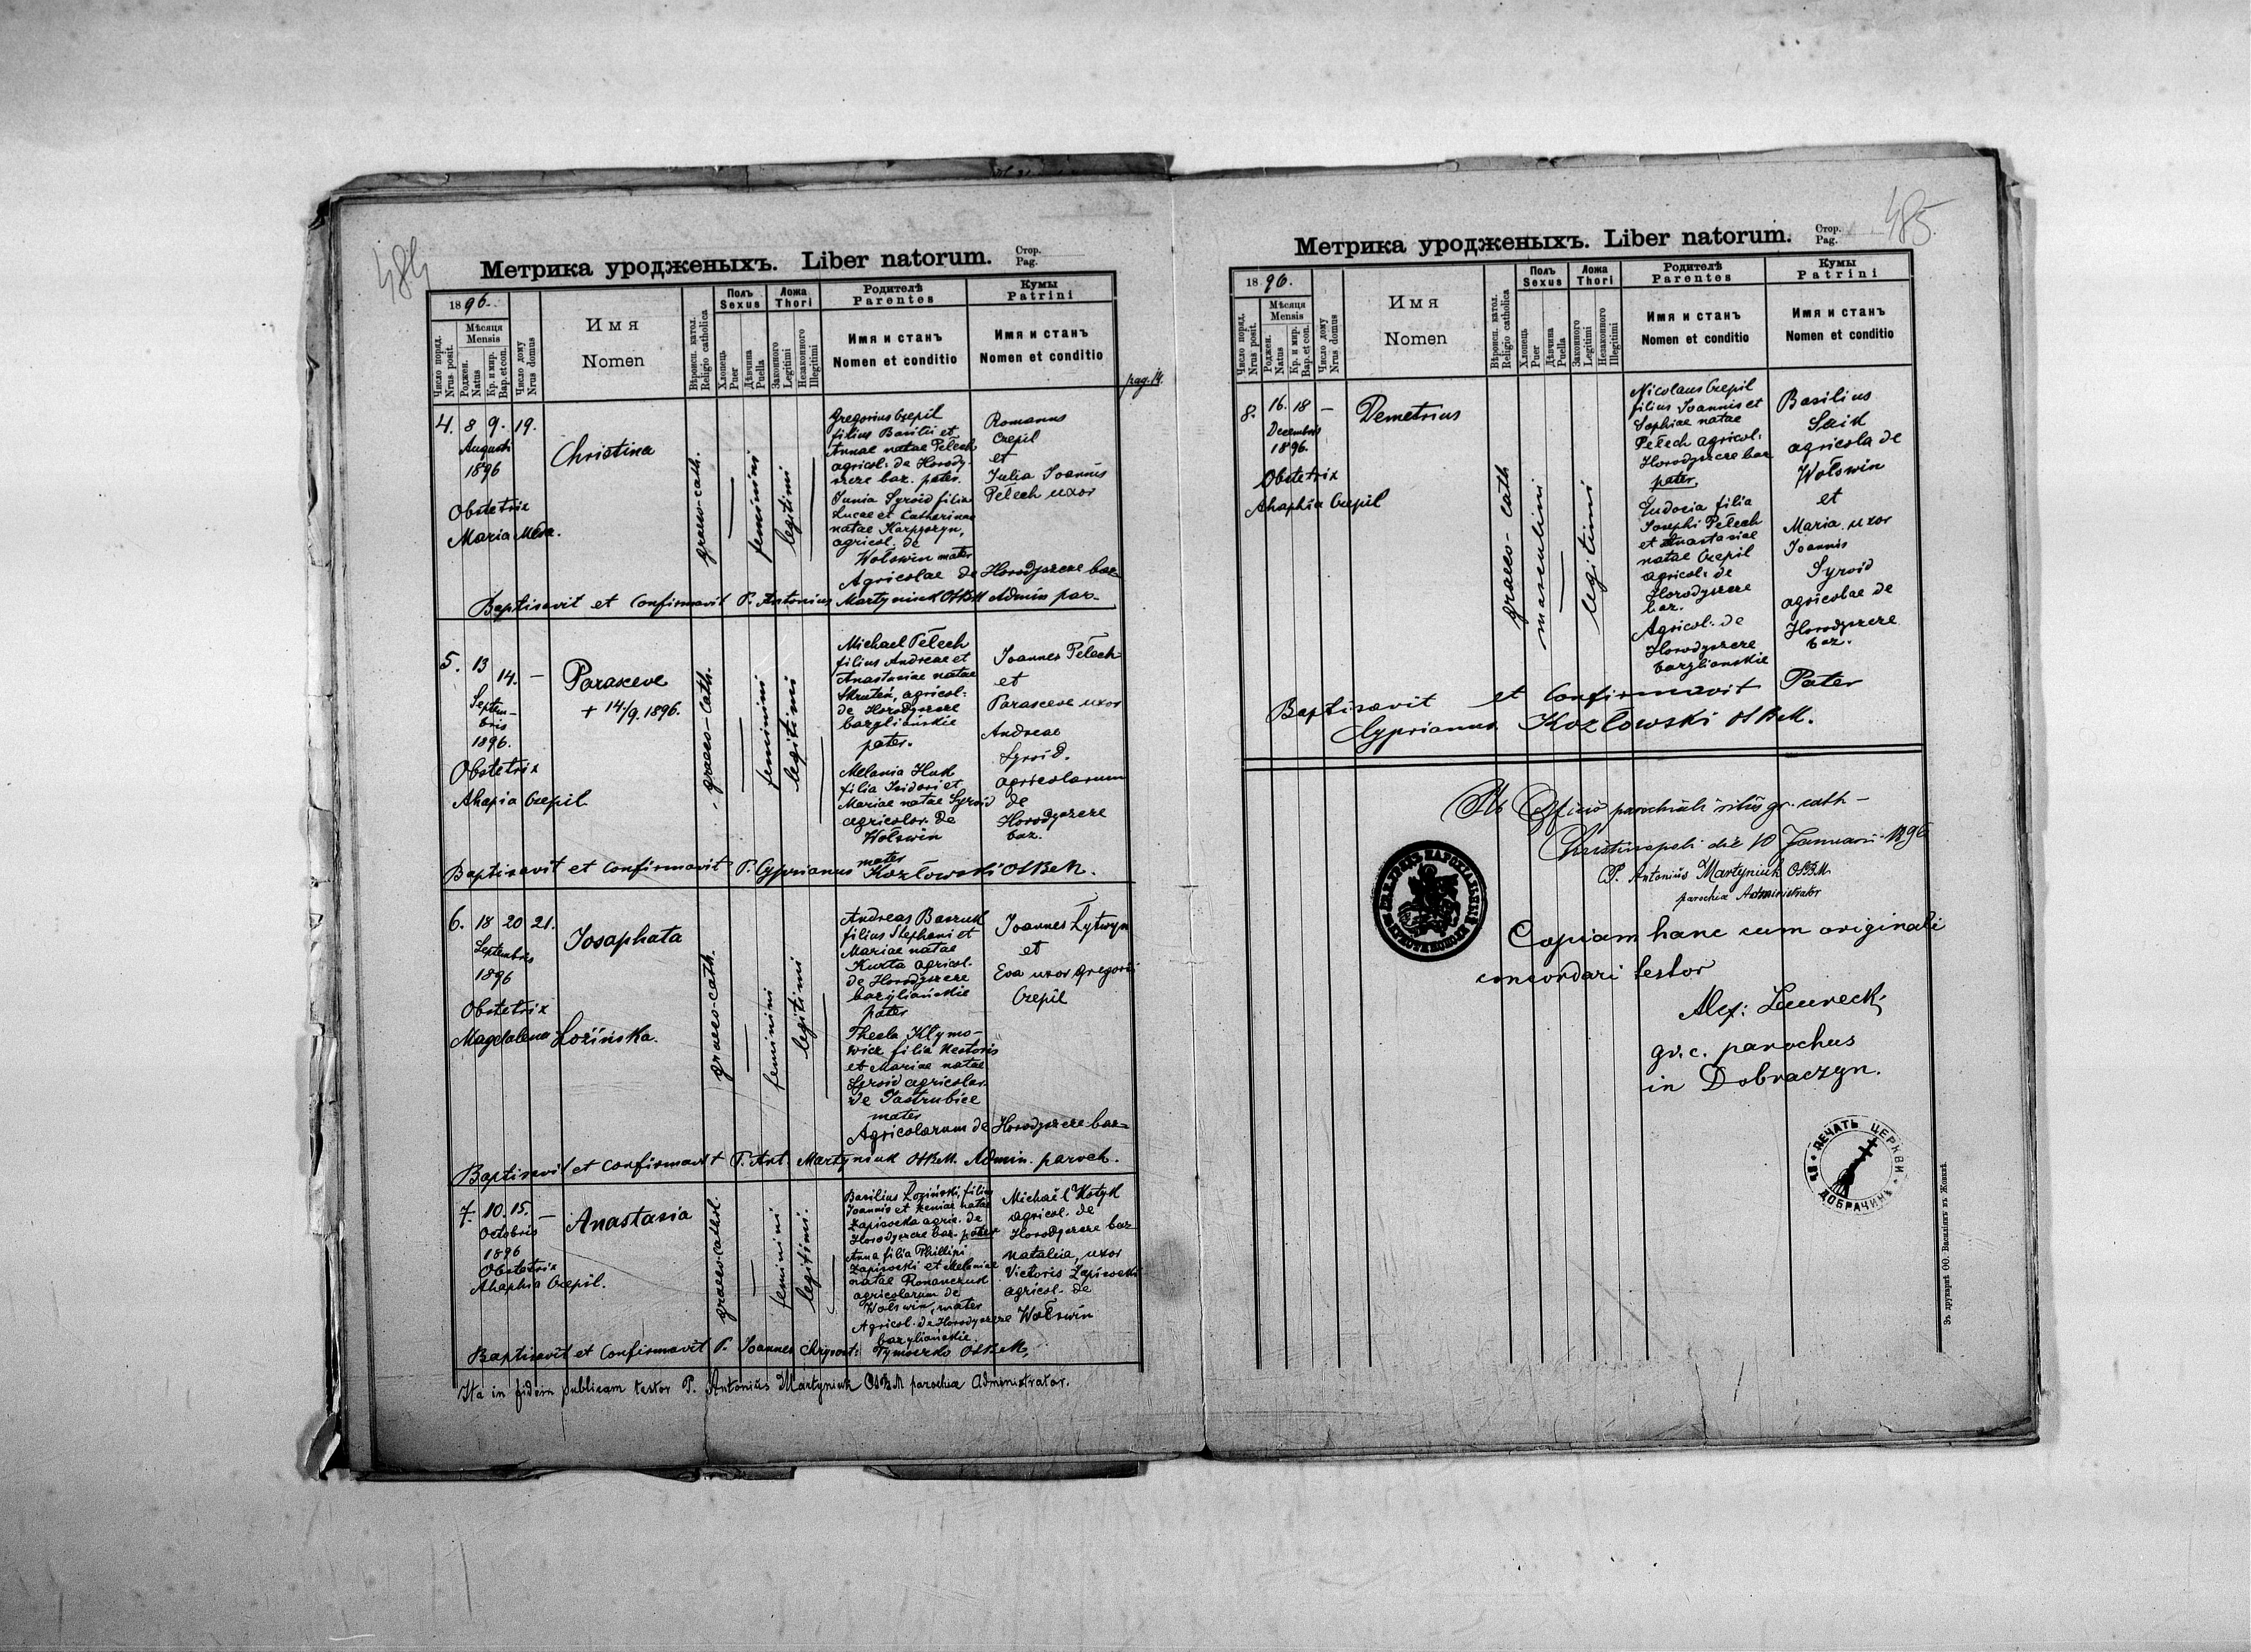 484
Метрика уродженыхъ. Liber natorum.
Стор.
Pag.
1896.
Число поряд.
Nrus posit.
Мѣсяця
Mensis
Роджен.
Natus
Кр. и мир.
Bap. et con.
Число дому
Nrus domus
Имя
Nomen
Вѣроисп. катол.
Religio catholica
Полъ
Sexus
Хлопець
Puer
Дѣвчина
Puella
Ложа
Thori
Законного
Legitimi
Незаконного
Illegitimi
Родителѣ
Parentes
Имя и станъ
Nomen et conditio
Кумы
Patrini
Имя и станъ
Nomen et conditio
pag. 14.
4. 8 9. 19.
Augusti
1896
Obstetrix
Maria
Christina
graeco-cath.
feminini
legitimi
Gregorius Czepil
filius Basilii et
Annae natae Pełech
agricol. de Horody-
szcze baz. pater.
Syroid filia
Lucae et Catharinae
natae
agricol. de
Wołswin mater
Agricolae de Horodyszcze baz-
Romanus
Czepil
et
Julia Joannis
Pełech uxor
Baptisavit et Confirmavit P. Antonius Martyniuk OSBM Admin par-
5. 13 14. —
Septem-
bris
1896.
Obstetrix
Ahapia Czepil
Parasceve
+ 14/9. 1896.
graeco-cath.
feminini
legitimi
Michael Pełech
filius Andreae et
Anastasiae natae
agricol:
de Horodyszcze
bazyliańskie
pater.
Melania Huk
filia Isidori et
Mariae natae Syroid
agricolar. de
Wołswin
mater
Joannes Pełech
et
Parasceve uxor
Andreae
Syroid.
agricolarum
de
Horodyszcze
baz.
Baptisavit et Confirmavit P. Cyprianus Kozłowski OSBM.
6. 18 20 21.
Septembris
1896
Obstetrix
Magdalena Łozińska.
Josaphata
graeco-cath.
feminini
legitimi
Andreas
filius Stephani et
Mariae natae
Kurta agricol.
de Horodyszcze
bazyliańskie
pater
Thecla Klymo-
wicz filia Nestoris
et Mariae natae
Syroid agricolar.
de Jastrubice
mater
Agricolarum de Horodyszcze baz=
Joannes Łytwyn
et
Eva uxor Gregorii
Czepil
Baptisavit et Confirmavit P. Ant. Martyniuk OSBM. Admin. paroch.
7. 10. 15. —
Octobris
1896
Obstetrix
Ahaphia Czepil.
Anastasia
graeco-cathol.
feminini
legitimi.
Basilius Łoziński, filius
Joannis et Xeniae natae
Zapisocka agric. de
Horodyszcze baz. pater
Anna filia Phillipi
Zapisocki et Melaniae
natae Romanczuk
agricolarum de
Wołswin, mater
Agricol. de Horodyszcze
bazyliańskie.
Michaël Kotyk
agricol. de
Horodyszcze baz
Natalia, uxor
Victoris Zapisocki
agricol. de
Wołswin
Baptisavit et Confirmavit P. Joannes Chrysost: Tymoczko OSBM,
Ita in fidem publicam testor P. Antonius Martyniuk OSBM parochiae Administrator.
485.
Метрика уродженыхъ. Liber natorum.
Стор.
Pag.
1896.
Число поряд.
Nrus posit.
Мѣсяця
Mensis
Роджен.
Natus
Кр. и мир.
Bap. et con.
Число дому
Nrus domus
Имя
Nomen
Вѣроисп. катол.
Religio catholica
Полъ
Sexus
Хлопець
Puer
Дѣвчина
Puella
Ложа
Thori
Законного
Legitimi
Незаконного
Illegitimi
Родителѣ
Parentes
Имя и станъ
Nomen et conditio
Кумы
Patrini
Имя и станъ
Nomen et conditio
8. 16. 18 —
Decembris
1896.
Obstetrix
Ahaphia Czepil
Demetrius
graeco-cath
masculini
legitimi
Nicolaus Czepil
filius Joannis et
Sophiae natae
Pełech agricol:
Horodyszcze baz
pater,
Eudocia filia
Josephi Pełech
et Anastasiae
natae Czepil
agricol: de
Horodyszcze
baz.
Agricol: de
Horodyszcze
bazyliańskie
Basilius
Saik
agricola de
Wołswin
et
Maria uxor
Joannis
Syroid
agricolae de
Horodyszcze
baz.
Baptisavit et Confirmavit Pater
Cyprianus Kozłowski OSBM.
Ab Officio parochiali ritus gr. cath-
Christinopoli die 10 Januarii 1896
P. Antonius Martyniuk OSBM
parochiae Administrator
Copiam hanc cum originali
concordari testor
gr. c. parochus
in Dobraczyn.
ПЕЧАТЬ ЦЕРКВИ
ДОБРАЧИНЪ
Зъ друкарнѣ ОО. Василіянъ въ Жовквѣ.